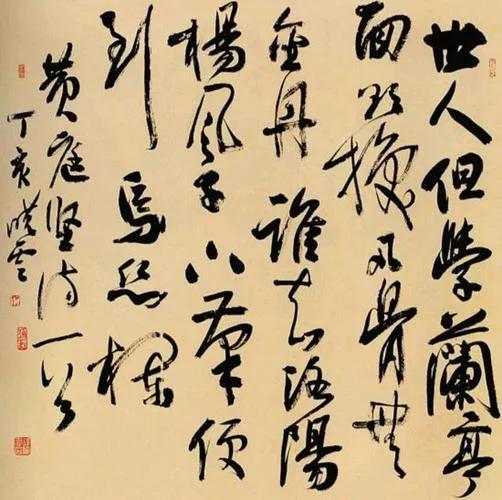 世人但學蘭亭
面欲換凡骨無
金丹誰知洛陽
楊風子下筆便
到烏絲欄
黄庭堅詩一首
丁亥曉雲